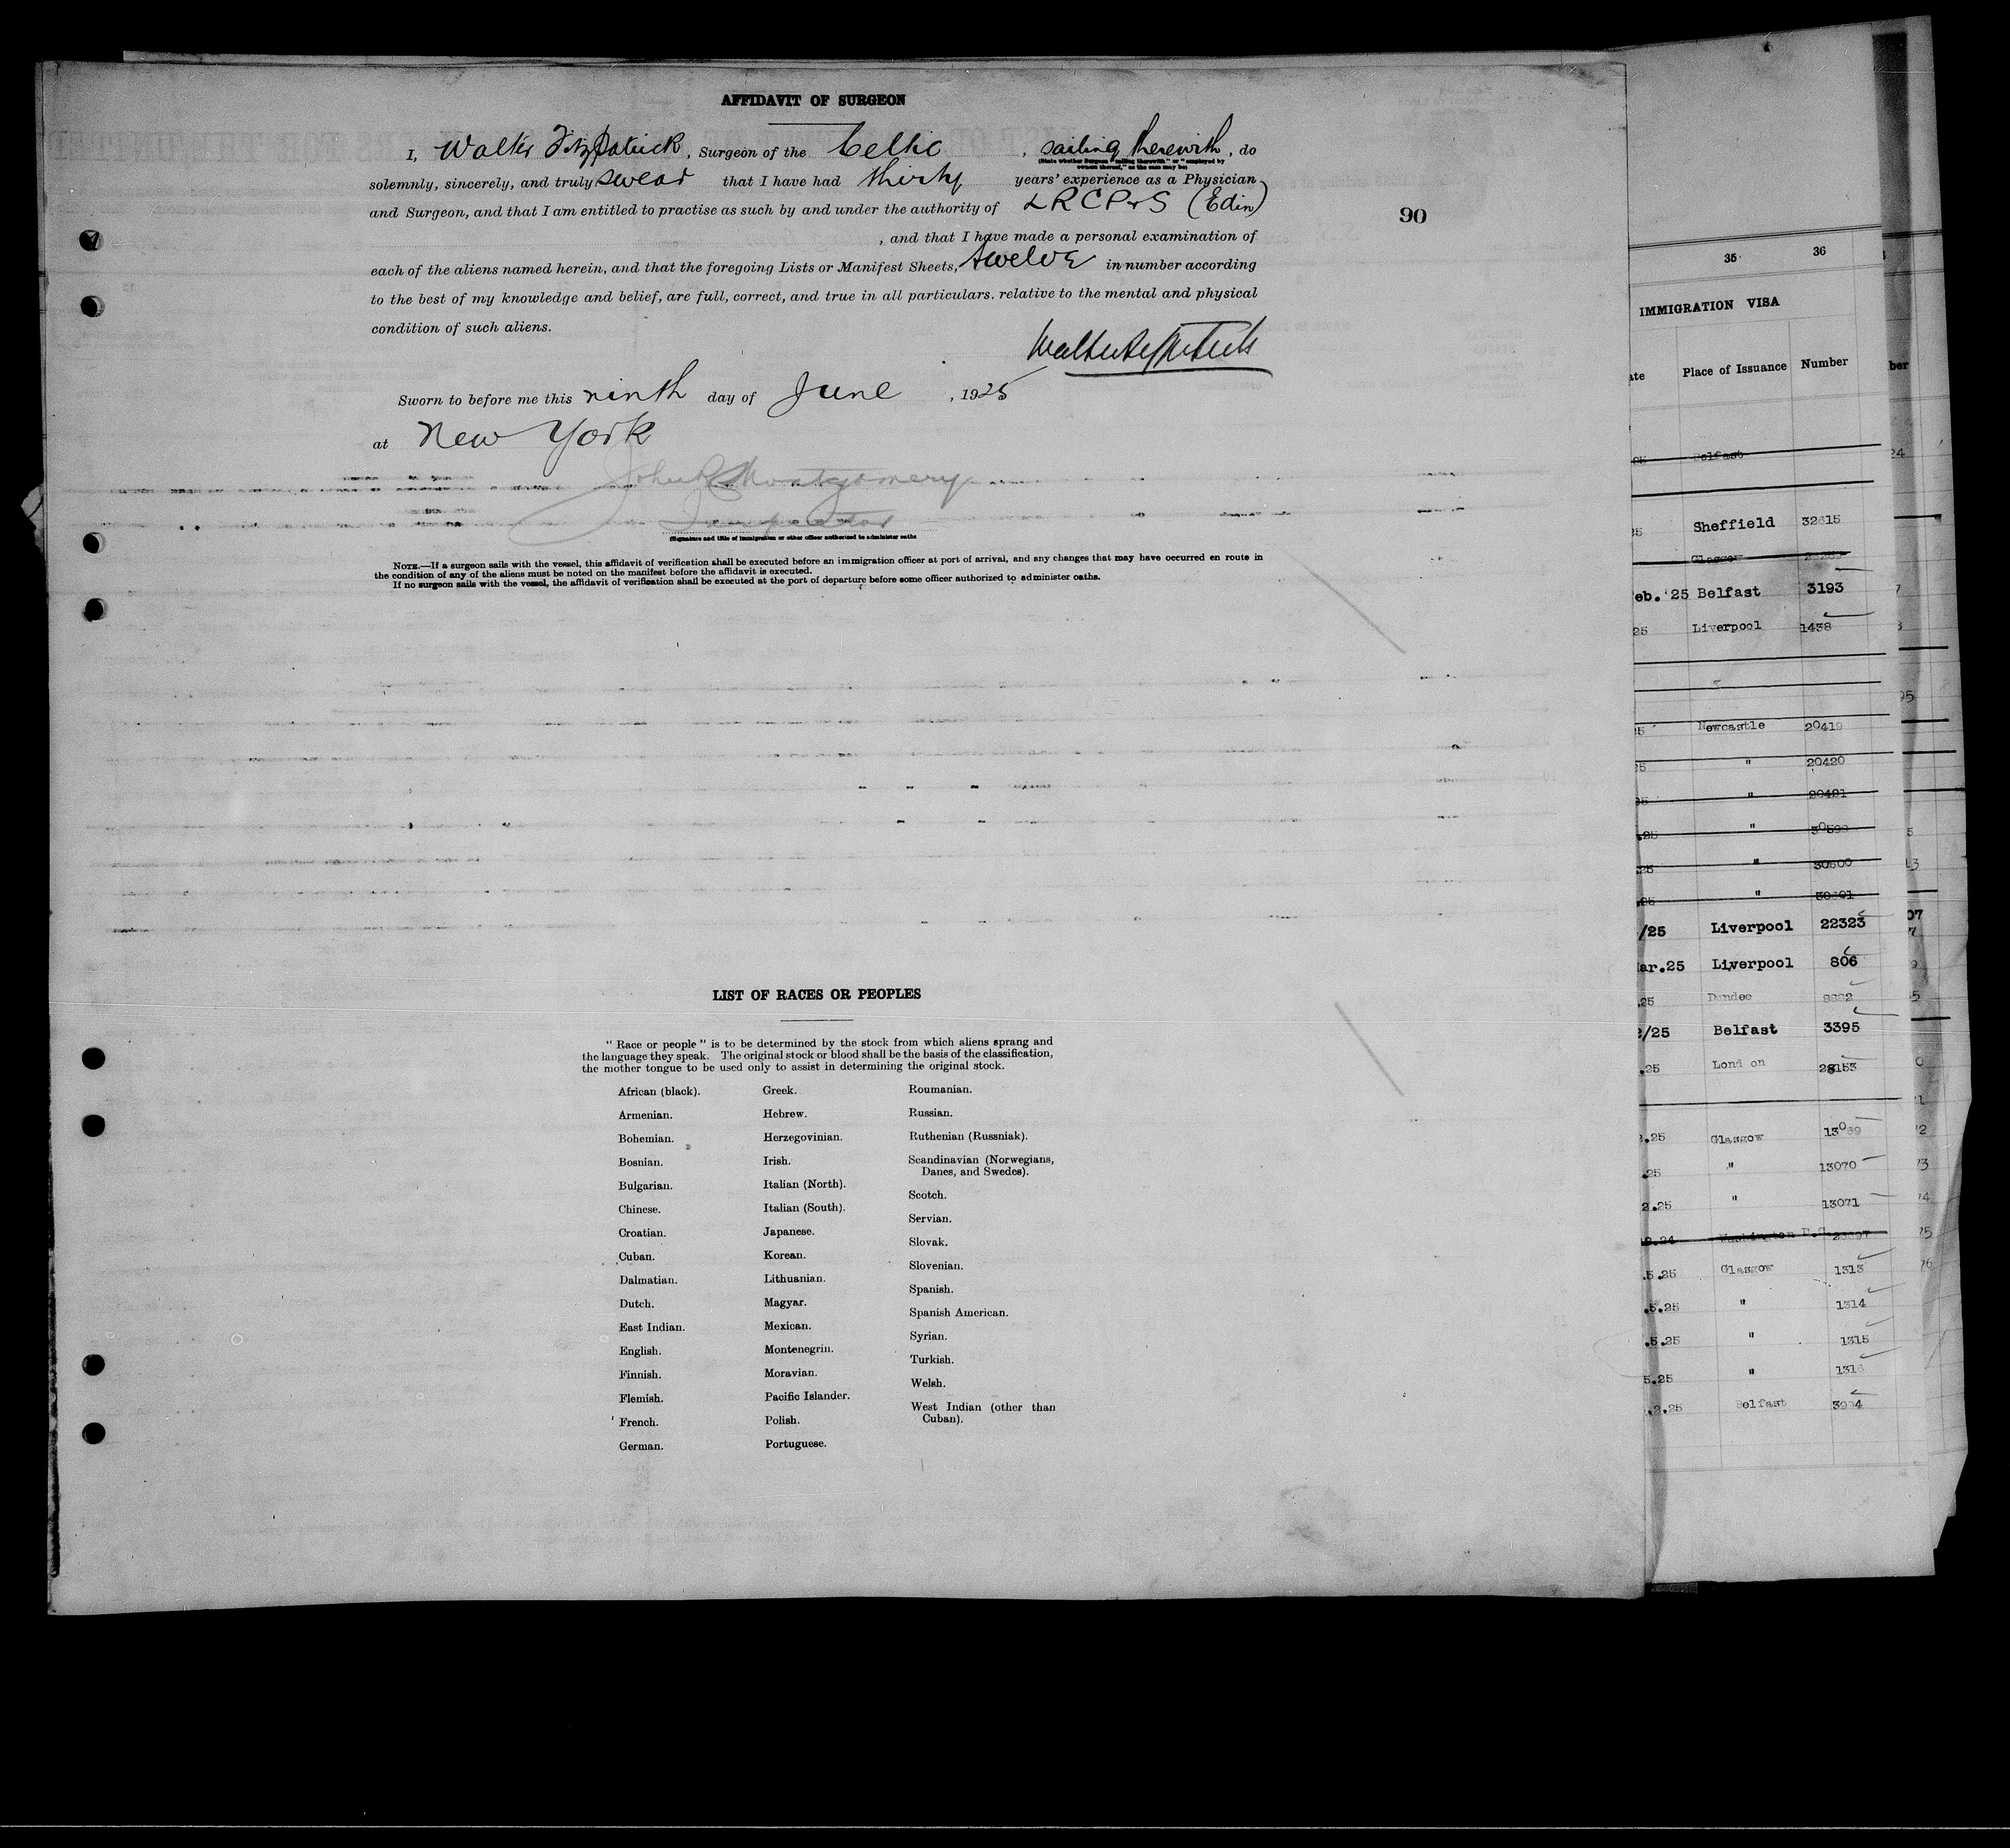 AFFIDAVIT OF SURGEON
I, Walter Fitzpatrick, Surgeon of the Celtic, sailing therewith, do
(State whether Surgeon "sailing therewith" or "employed by
owners thereof," as the case may be)
solemnly, sincerely, and truly swear that I have had thirty years' experience as a Physician
and Surgeon, and that I am entitled to practise as such by and under the authority of LRCP+S (Edin)
, and that I have made a personal examination of
each of the aliens named herein, and that the foregoing Lists or Manifest Sheets, twelve in number according
to the best of my knowledge and belief, are full, correct, and true in all particulars. relative to the mental and physical
condition of such aliens.
Sworn to before me this ninth day of June, 1925
at New York
John R Montgomery
Inspector
(Signature and title of immigration or other officer authorized to administer oaths
NOTE.—If a surgeon sails with the vessel, this affidavit of verification shall be executed before an immigration officer at port of arrival, and any changes that may have occurred en route in
the condition of any of the aliens must be noted on the manifest before the affidavit is executed.
If no surgeon sails with the vessel, the affidavit of verification shall be executed at the port of departure before some officer authorized to administer oaths.
90
LIST OF RACES OR PEOPLES
" Race or people " is to be determined by the stock from which aliens sprang and
the language they speak. The original stock or blood shall be the basis of the classification,
the mother tongue to be used only to assist in determining the original stock.
African (black).
Armenian.
Bohemian.
Bosnian.
Bulgarian.
Chinese.
Croatian.
Cuban.
Dalmatian.
Dutch.
East Indian.
English.
Finnish.
Flemish.
French.
German.
Greek.
Hebrew.
Herzegovinian.
Irish.
Italian (North).
Italian (South).
Japanese.
Korean.
Lithuanian.
Magyar.
Mexican.
Montenegrin.
Moravian.
Pacific Islander.
Polish.
Portuguese.
Roumanian.
Russian.
Ruthenian (Russniak).
Scandinavian (Norwegians,
Danes, and Swedes).
Scotch.
Servian.
Slovak.
Slovenian.
Spanish.
Spanish American.
Syrian.
Turkish.
Welsh.
West Indian (other than
Cuban).
35 36
IMMIGRATION VISA
Place of Issuance Number
Belfast
Sheffield 32615
Glasgow
eb. '25 Belfast 3193
25 Liverpool 1438
Newcastle 20419
" 20420
" 20421
.25 "
.25 " 30600
.25 "
/25 Liverpool 22323
ar.25 Liverpool 806
.25 Dundee
/25 Belfast 3395
.25 London 28153
.25 Glasgow 13069
.25 " 13070
2.25 " 13071
Washington D.C.
.5.25 Glasgow 1313
.5.25 " 1314
.5.25 " 1315
5.25 " 1316
.2.25 Belfast